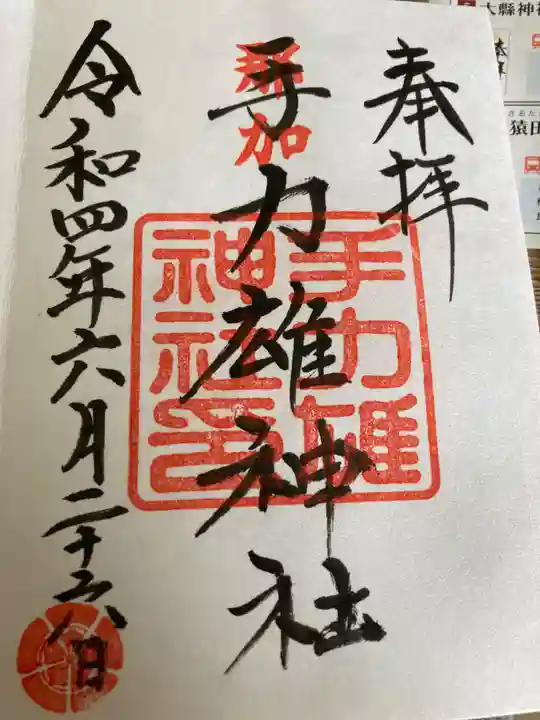 奉拝
那加
手力雄神社
手力雄
神社印
令和四年六月二十六日
大縣神
猿田